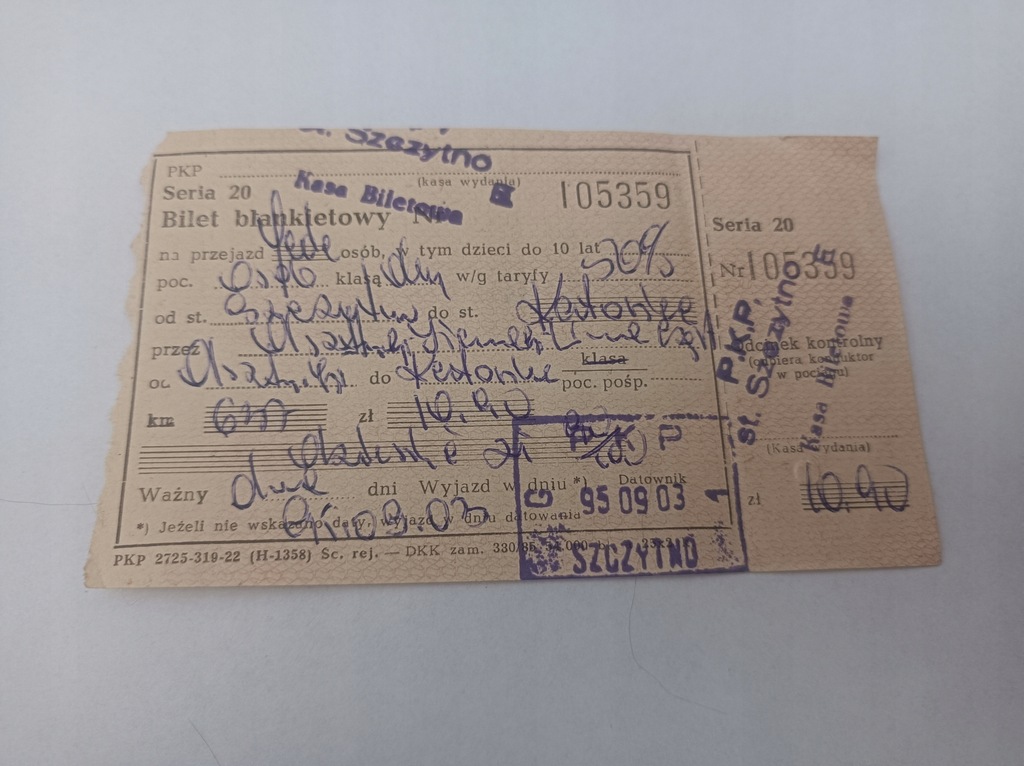 st. Szczytno
PKP
(kasa wydania)
Kasa Biletowa
Seria 20
105359
Bilet blankietowy Nr
na przejazd jeden osób, w tym dzieci do 10 lat 50%
poc. osob klasą w/g taryfy
od st. Szczytno do st. Katowice
przez Olsztyn
od Olsztyn do Katowice klasa poc. pośp.
km zł 10.90
Ważny dwa dni Wyjazd w dniu *)
95.09.03
*) Jeżeli nie wskazano daty, wyjazd w dniu datowania
PKP 2725-319-22 (H-1358) Sc. rej. — DKK zam.
PKP
Datownik
95 09 03 1
SZCZYTNO
Seria 20
Nr 105359
P.K.P.
st. Szczytno
Kasa Biletowa
Odcinek kontrolny
(odbiera konduktor
w pociągu)
(Kasa wydania)
zł 10.90